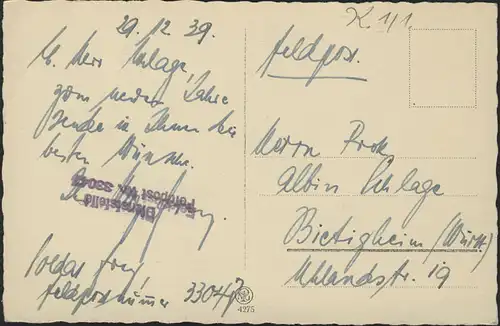 29. 12. 39.
L. Herr Schlage,
zum neuen Jahre
sende ich Ihnen die
besten Wünsche.
Dienststelle
Feldpost Nr. 33047
Soldat Frey
Feldpostnummer 33047
K 41.
Feldpost.
Herrn Prok.
Albin Schlage
Bietigheim (Württ.)
Uhlandstr. 19
4275